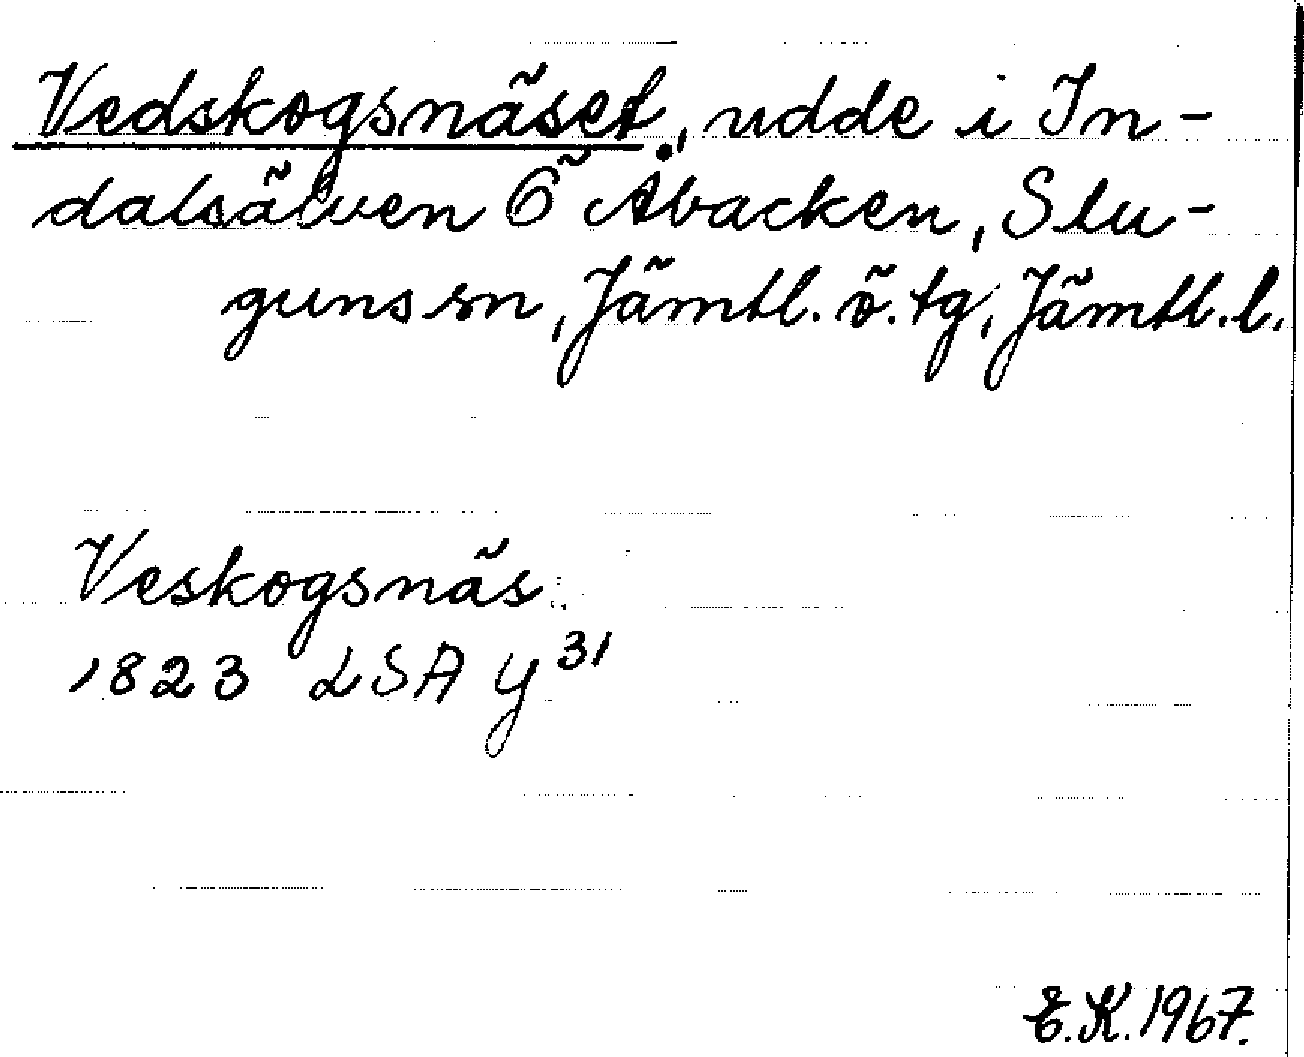 Vedskogsnäset, udde i In-
dalsälven Ö Åbacken, Stu-
guns sn, Jämtl. ö. tg, Jämtl. l.
Veskogsnäs
1823 LSA Y 31
E.K. 1967.